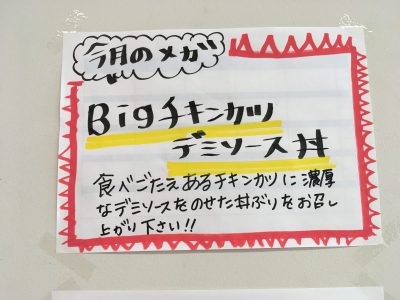 今月のメガ
Bigチキンカツ
デミソース丼
食べごたえあるチキンカツに濃厚
なデミソースをのせた丼ぶりをお召し
上がり下さい!!